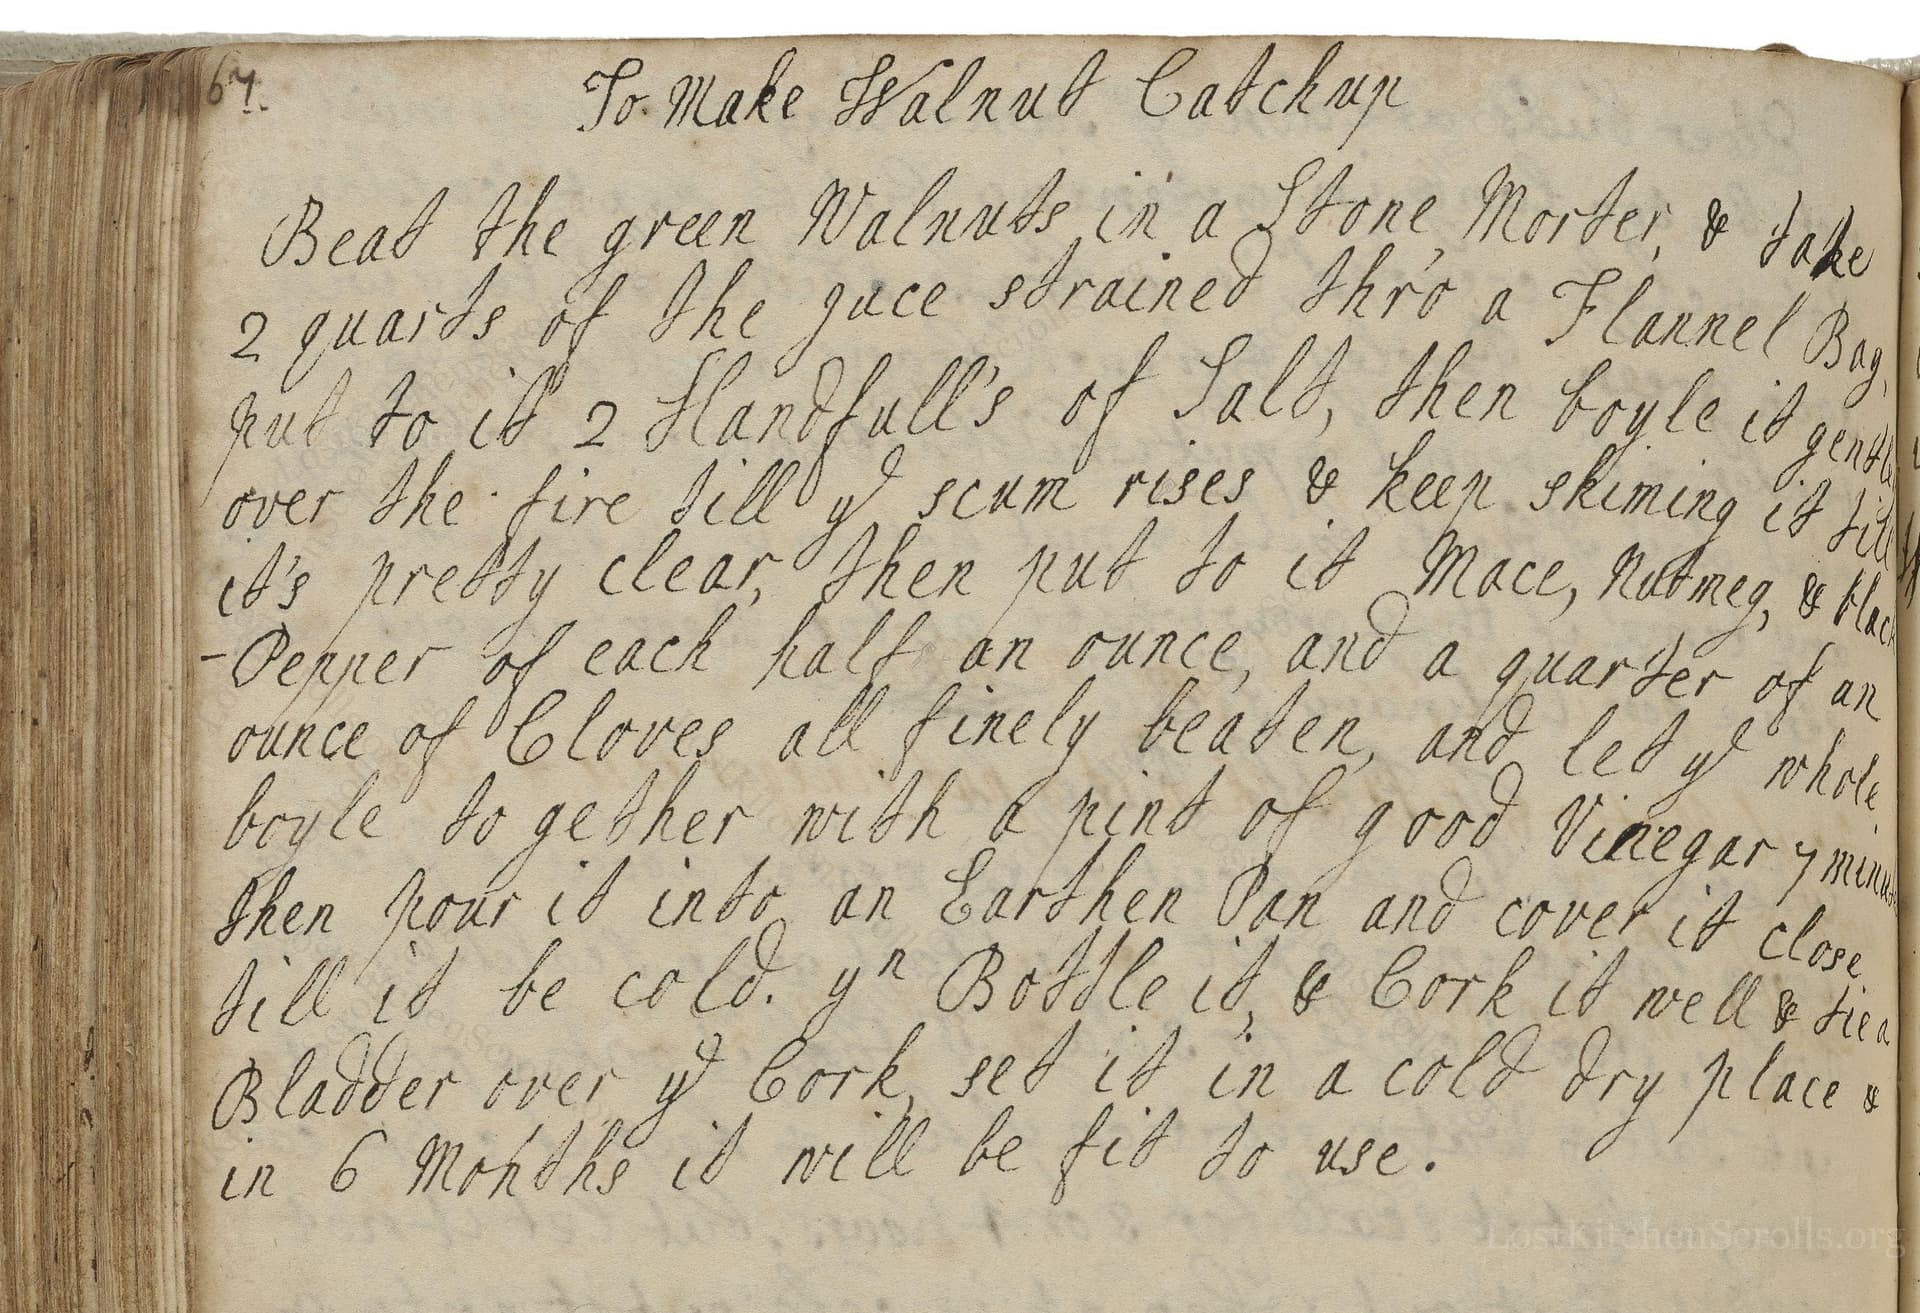 67.
To Make Walnut Catchup
Beat the green Walnuts in a Stone Morter, & take
2 quarts of the juce strained thr'o a Flannel Bag,
put to it 2 Handfull's of Salt, then boyle it gently
over the fire till ye scum rises & keep skiming it till
it's pretty clear, then put to it Mace, Nutmeg, & black
-Pepper of each half an ounce, and a quarter of an
ounce of Cloves all finely beaten, and let ye whole
boyle to gether with a pint of good Vinegar 7 minutes
then pour it into an Earthen Pan and cover it close
till it be cold. yn Bottle it, & Cork it well & tie a
Bladder over ye Cork, set it in a cold dry place &
in 6 Months it will be fit to use.
LostKitchenScrolls.org